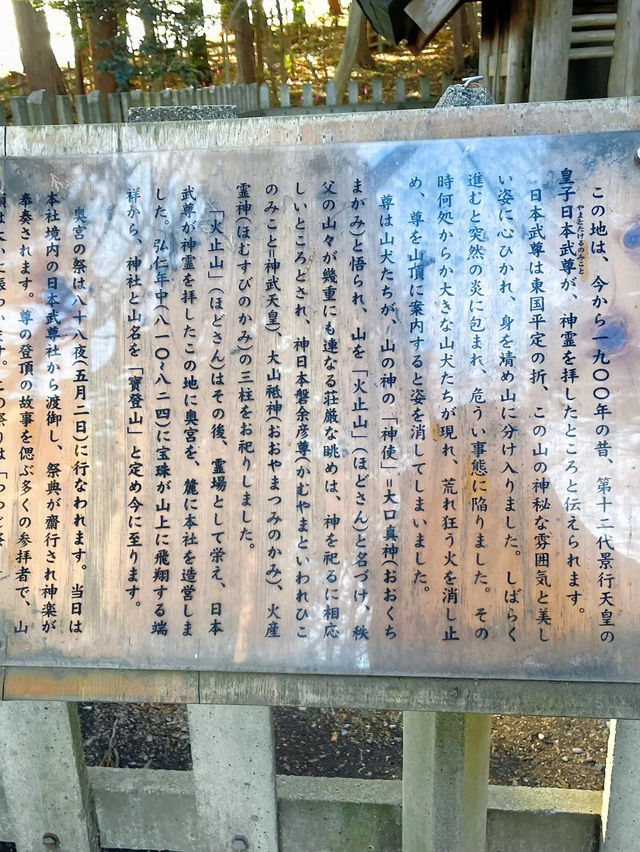 この地は、今から一九〇〇年の昔、第十二代景行天皇の
皇子日本武尊が、神霊を拝したところと伝えられます。
やまとたけるのみこと
日本武尊は東国平定の折、この山の神秘な雰囲気と美し
い姿に心ひかれ、身を清め山に分け入りました。しばらく
進むと突然の炎に包まれ、危うい事態に陥りました。その
時何処からか大きな山犬たちが現れ、荒れ狂う火を消し止
め、尊を山頂に案内すると姿を消してしまいました。
尊は山犬たちが、山の神の「神使」=大口真神(おおくち
まかみ)と悟られ、山を「火止山」(ほどさん)と名づけ、秩
父の山々が幾重にも連なる荘厳な眺めは、神を祀るに相応
しいところとされ、神日本磐余彦尊(かむやまといわれひこ
のみこと=神武天皇)、大山祗神(おおやまつみのかみ)、火産
霊神(ほむすびのかみ)の三柱をお祀りしました。
「火止山」(ほどさん)はその後、霊場として栄え、日本
武尊が神霊を拝したこの地に奥宮を、麓に本社を造営しま
した。弘仁年中(八一〇~八二四)に宝珠が山上に飛翔する端
祥から、神社と山名を「寳登山」と定め今に至ります。
奥宮の祭は八十八夜(五月二日)に行なわれます。当日は
本社境内の日本武尊社から渡御し、祭典が齋行され神楽が
奉奏されます。尊の登頂の故事を偲ぶ多くの参拝者で、山
頂は大いに賑わいます。この祭りは「つつじ祭